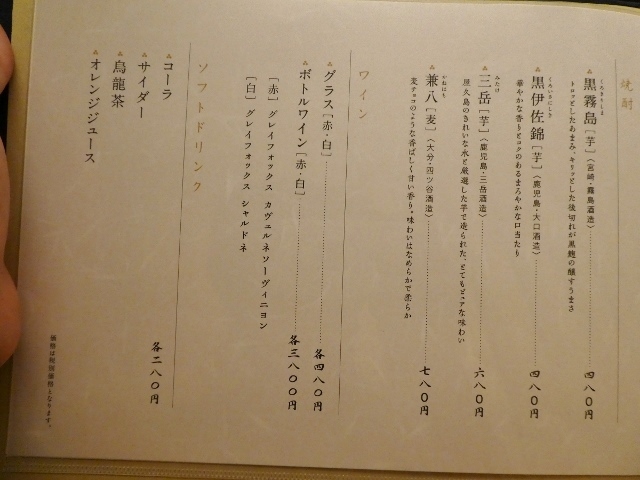 焼酎
黒霧島［芋］（宮崎・霧島酒造） 四八〇円
くろきりしま
トロッとしたあまみ、キリッとした後切れが黒麹の醸すうまさ
黒伊佐錦［芋］（鹿児島・大口酒造） 四八〇円
くろいさにしき
華やかな香りとコクのあるまろやかな口当たり
三岳［芋］（鹿児島・三岳酒造） 六八〇円
みたけ
屋久島のきれいな水と厳選した芋で造られた、とてもピュアな味わい
兼八［麦］（大分・四ツ谷酒造） 七八〇円
かねはち
麦チョコのような香ばしく甘い香り。味わいはなめらかで柔らか
ワイン
グラス［赤・白］ 各四八〇円
ボトルワイン［赤・白］ 各三八〇〇円
［赤］グレイフォックス カヴェルネソーヴィニヨン
［白］グレイフォックス シャルドネ
ソフトドリンク
コーラ 各二八〇円
サイダー
烏龍茶
オレンジジュース
価格は税別価格となります。